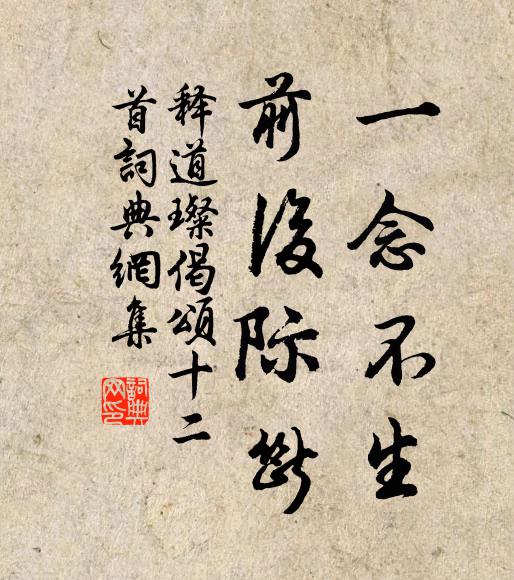 一念不生
前後际斷
释道璨偈頌十二
首詞典網集
詞典
网印